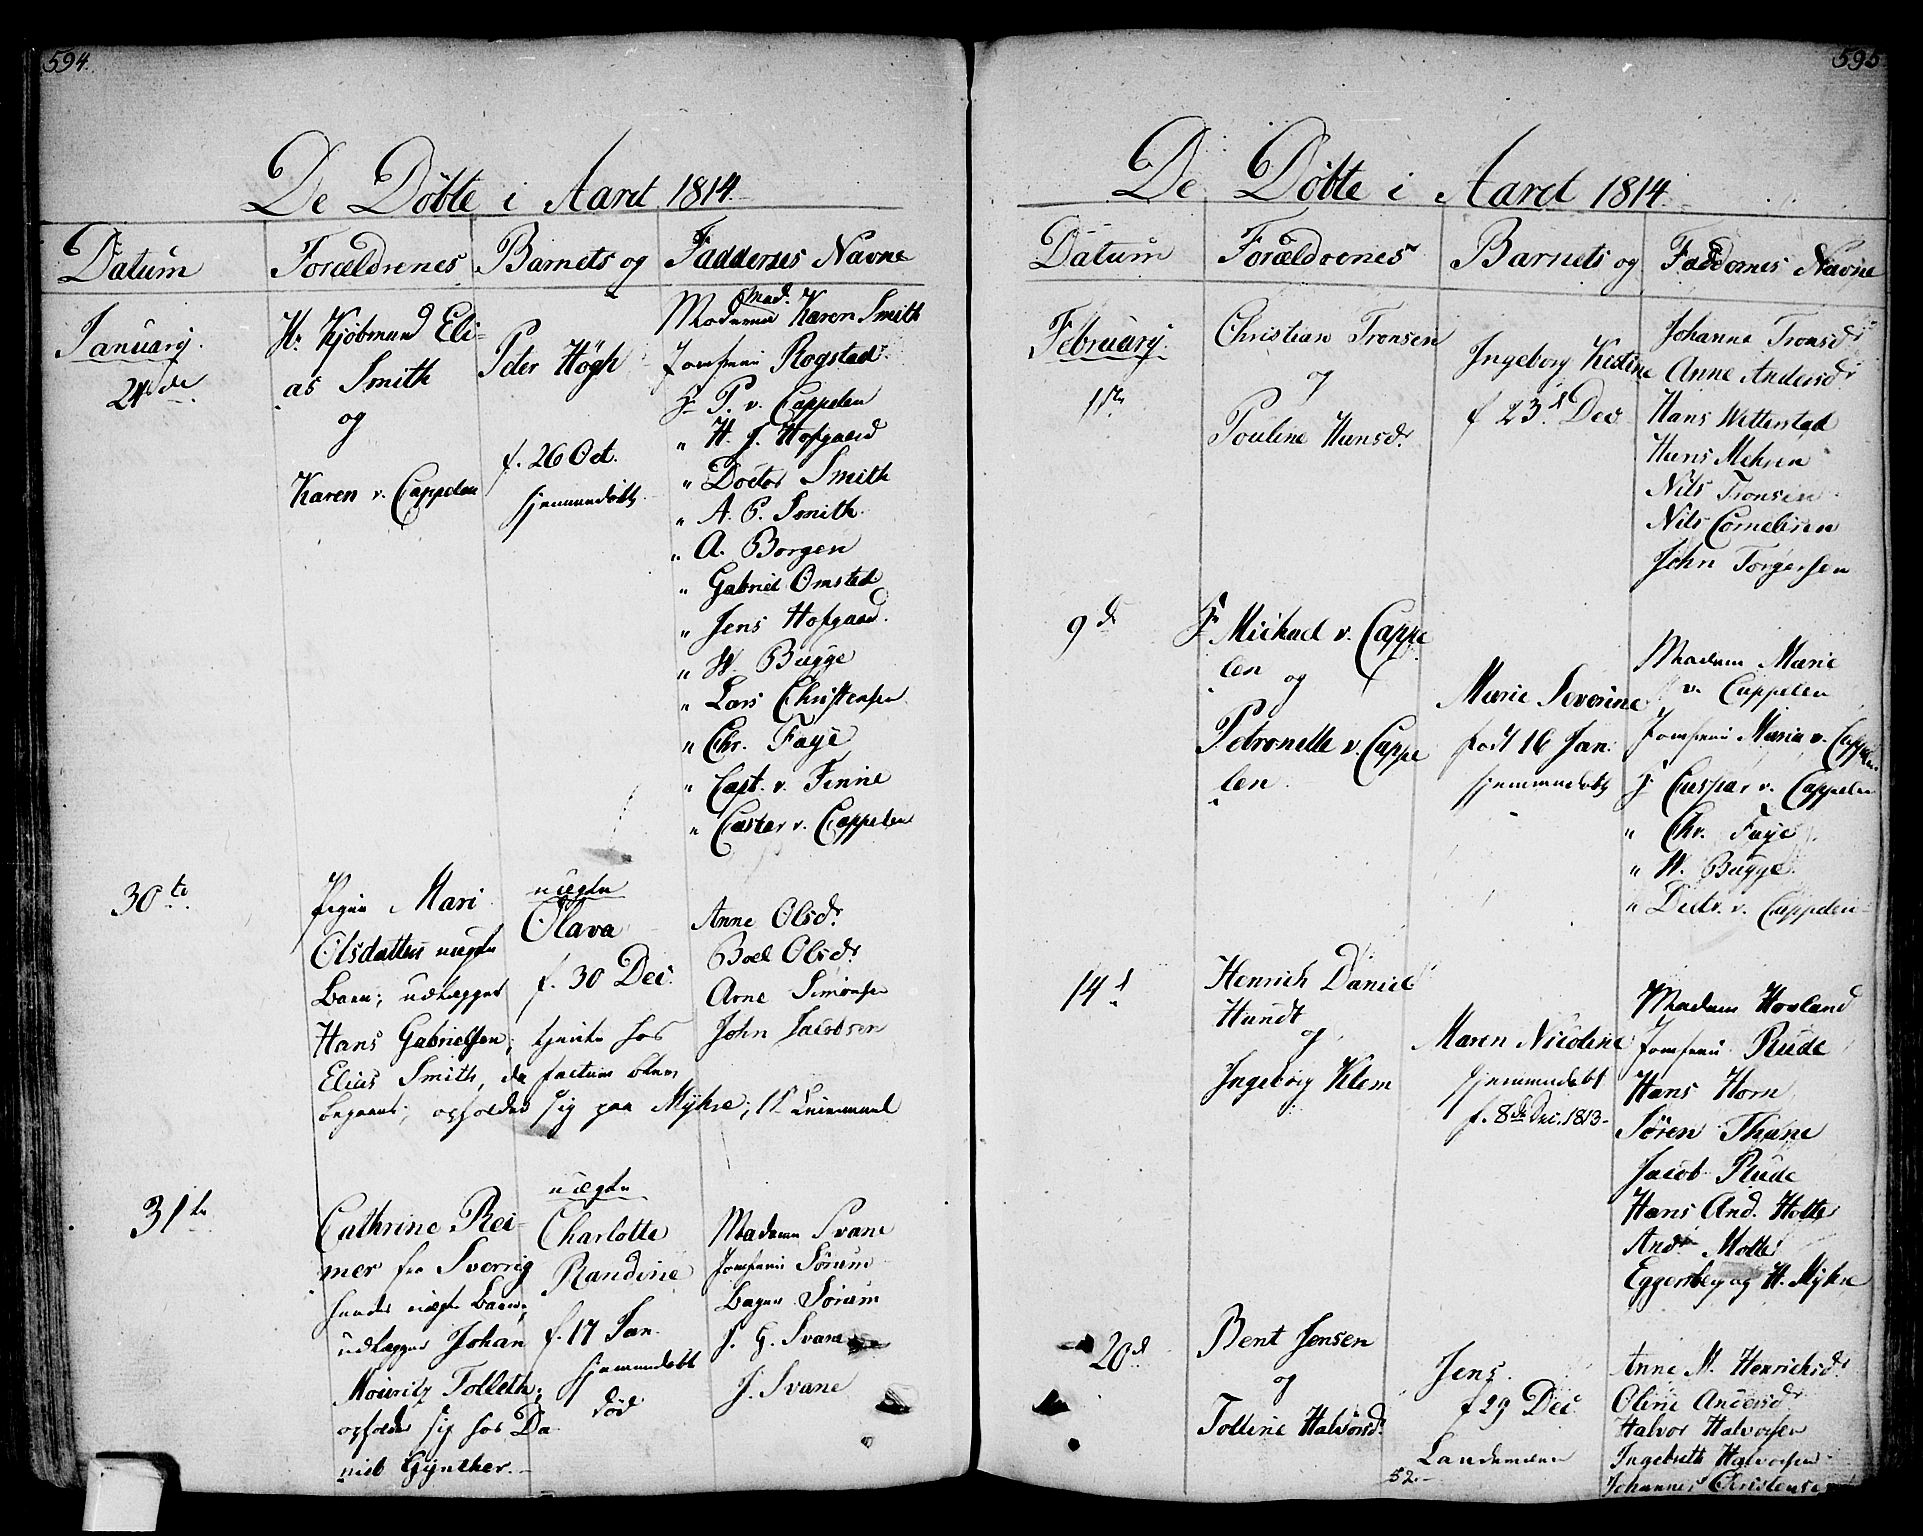 594.
De Döbte i Aaret 1814
Datum
Forældrenes
Barnets og
Faddernes Navne
January.
24de
Hr Kjöbmand Eli-
as Smith
og
Karen v. Cappelen
Peter Högh
f. 26 Oct.
hjemmedöbt
Mad.
Madame Karen Smith
Jomfrue Rogstad
Hr P. v. Cappelen
" H. J. Hofgaard
" Doctor Smith
" A. P. Smith
" A. Borgen
" Gabriel Omsted
" Jens Hofgaard.
" W. Bugge
" Lars Christensen
" Chr. Faye
" Capt. v. Finne
" Caster v. Cappelen
30te
Pigen Mari
Olsdatters uægte
Barn; udlægger
Hans Gabrielsen; tjente hos
Elias Smith, da factum blev
begaaet; opholder sig paa Mykse; 1ste Leiermaal
uægte
Olava
f. 30 Dec.
Anne Olsdr
Boel Olsdr
Arne Simonsen
John Jacobsen
31te
Cathrine Rei-
mer fra Sverrig
hendes uægte Barn,
udlægger Johan
Mouritz Tolleth;
opholder sig hos Da-
niel Gynther.
uægte
Charlotte
Randine
f. 17 Jan.
hjemmedöbt
död
Madame Svane
Jomfrue Sörum
Bager Sörum
J. G. Svane
J. Svane
595
De Döbte i Aaret 1814
Datum
Forældrenes
Barnets og
Faddernes Navne
February.
1ste
Christian Tronsen
og
Pouline Hansdr
Ingeborg Kistine
f 23d Dec
Johanne Tronsdr
Anne Andersdr
Hans Wetterstad
Hans Mehsen
Nils Tronsen
Nils Cornelisen
John Torgersen
9de
Hr Michael v. Cappe
len og
Petronelle v. Cappe
len
Marie Severine
født 16 Jan.
hjemmedöbt
Madam Marie
v. Cappelen
Jomfrue Maria v. Cappelen
Hr Caspar v. Cappelen
" Chr. Faye
" W. Bugge
" Didr. v. Cappelen
14d
Henrich Daniel
Hundt
og
Ingeborg Klem
Maren Nicoline
hjemmedöbt
f. 8de Dec. 1813
Madam Hovland
Jomfrue Rude
Hans Horn
Sören Thane
Jacob Rude
Hans And. Holte
Andr Molte
Eggersbey og H. Mykse
20d
Bent Jensen
og
Tolline Halvorsdr
Jens
f 29 Dec
Landemænd
52.
Anne M. Henrichsdr
Oline Andersdr
Halvor Halvorsen
Ingebreth Halvorsen
Johannes Christensen